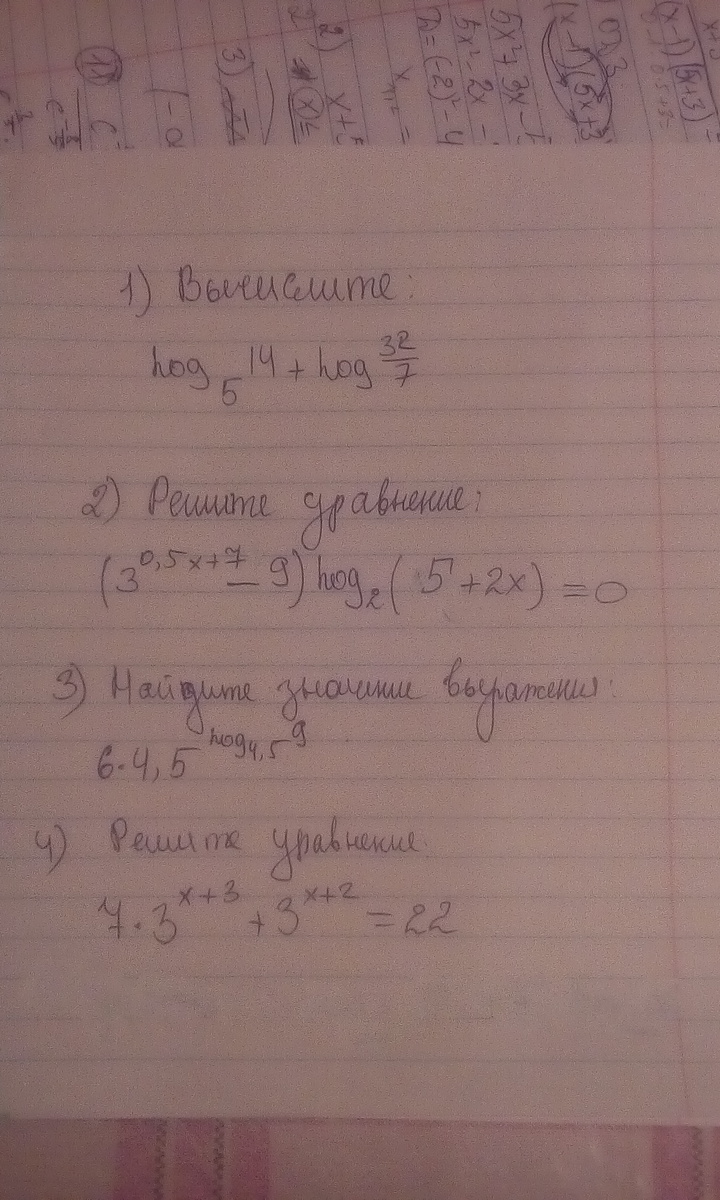 1) Вычислите:
log₅ 14 + log 32/7
2) Решите уравнение:
(3^(0,5x+7) − 9) log₂ (5 + 2x) = 0
3) Найдите значение выражения:
6·4,5^(log₄,₅ 9)
4) Решите уравнение.
7·3^(x+3) + 3^(x+2) = 22
(x-1)(5x+3)
5x²+3x-
5x²-2x-
D=(-2)²-4